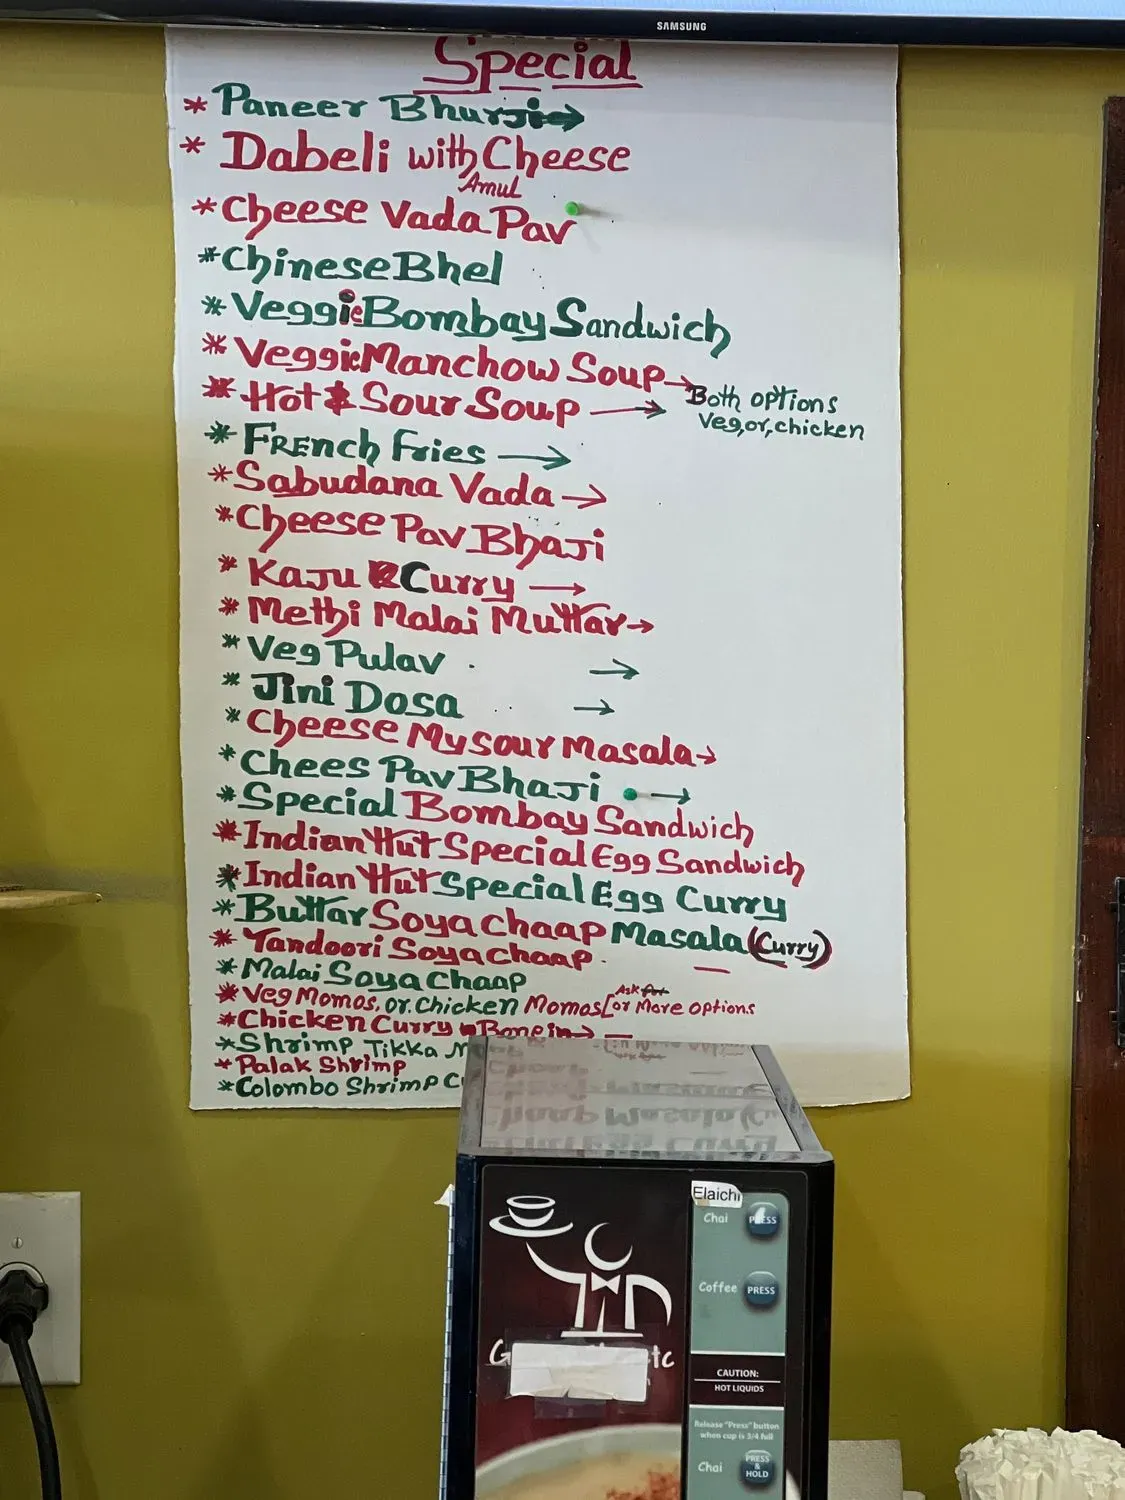 SAMSUNG
Special
* Paneer Bhurji→
* Dabeli with Cheese
Amul
* Cheese Vada Pav
* Chinese Bhel
* Veggie Bombay Sandwich
* Veggie Manchow Soup→
* Hot & Sour Soup → Both options
Veg,or,chicken
* FRENCH Fries →
* Sabudana Vada →
* Cheese Pav Bhaji
* Kaju Curry →
* Methi Malai Muttar→
* Veg Pulav →
* Jini Dosa →
* Cheese Mysour Masala→
* Chees Pav Bhaji →
* Special Bombay Sandwich
* Indian Hut Special Egg Sandwich
* Indian Hut Special Egg Curry
* Buttar Soya Chaap Masala (Curry)
* Tandoori Soya Chaap
* Malai Soya Chaap
* Veg Momos, or. Chicken Momos [or More options
Ask for
* Chicken Curry Bone in→
* Shrimp Tikka
* Palak Shrimp
* Colombo Shrimp
Elaichi
Chai PRESS
Coffee PRESS
CAUTION:
HOT LIQUIDS
Release "Press" button
when cup is 3/4 full
Chai PRESS
&
HOLD